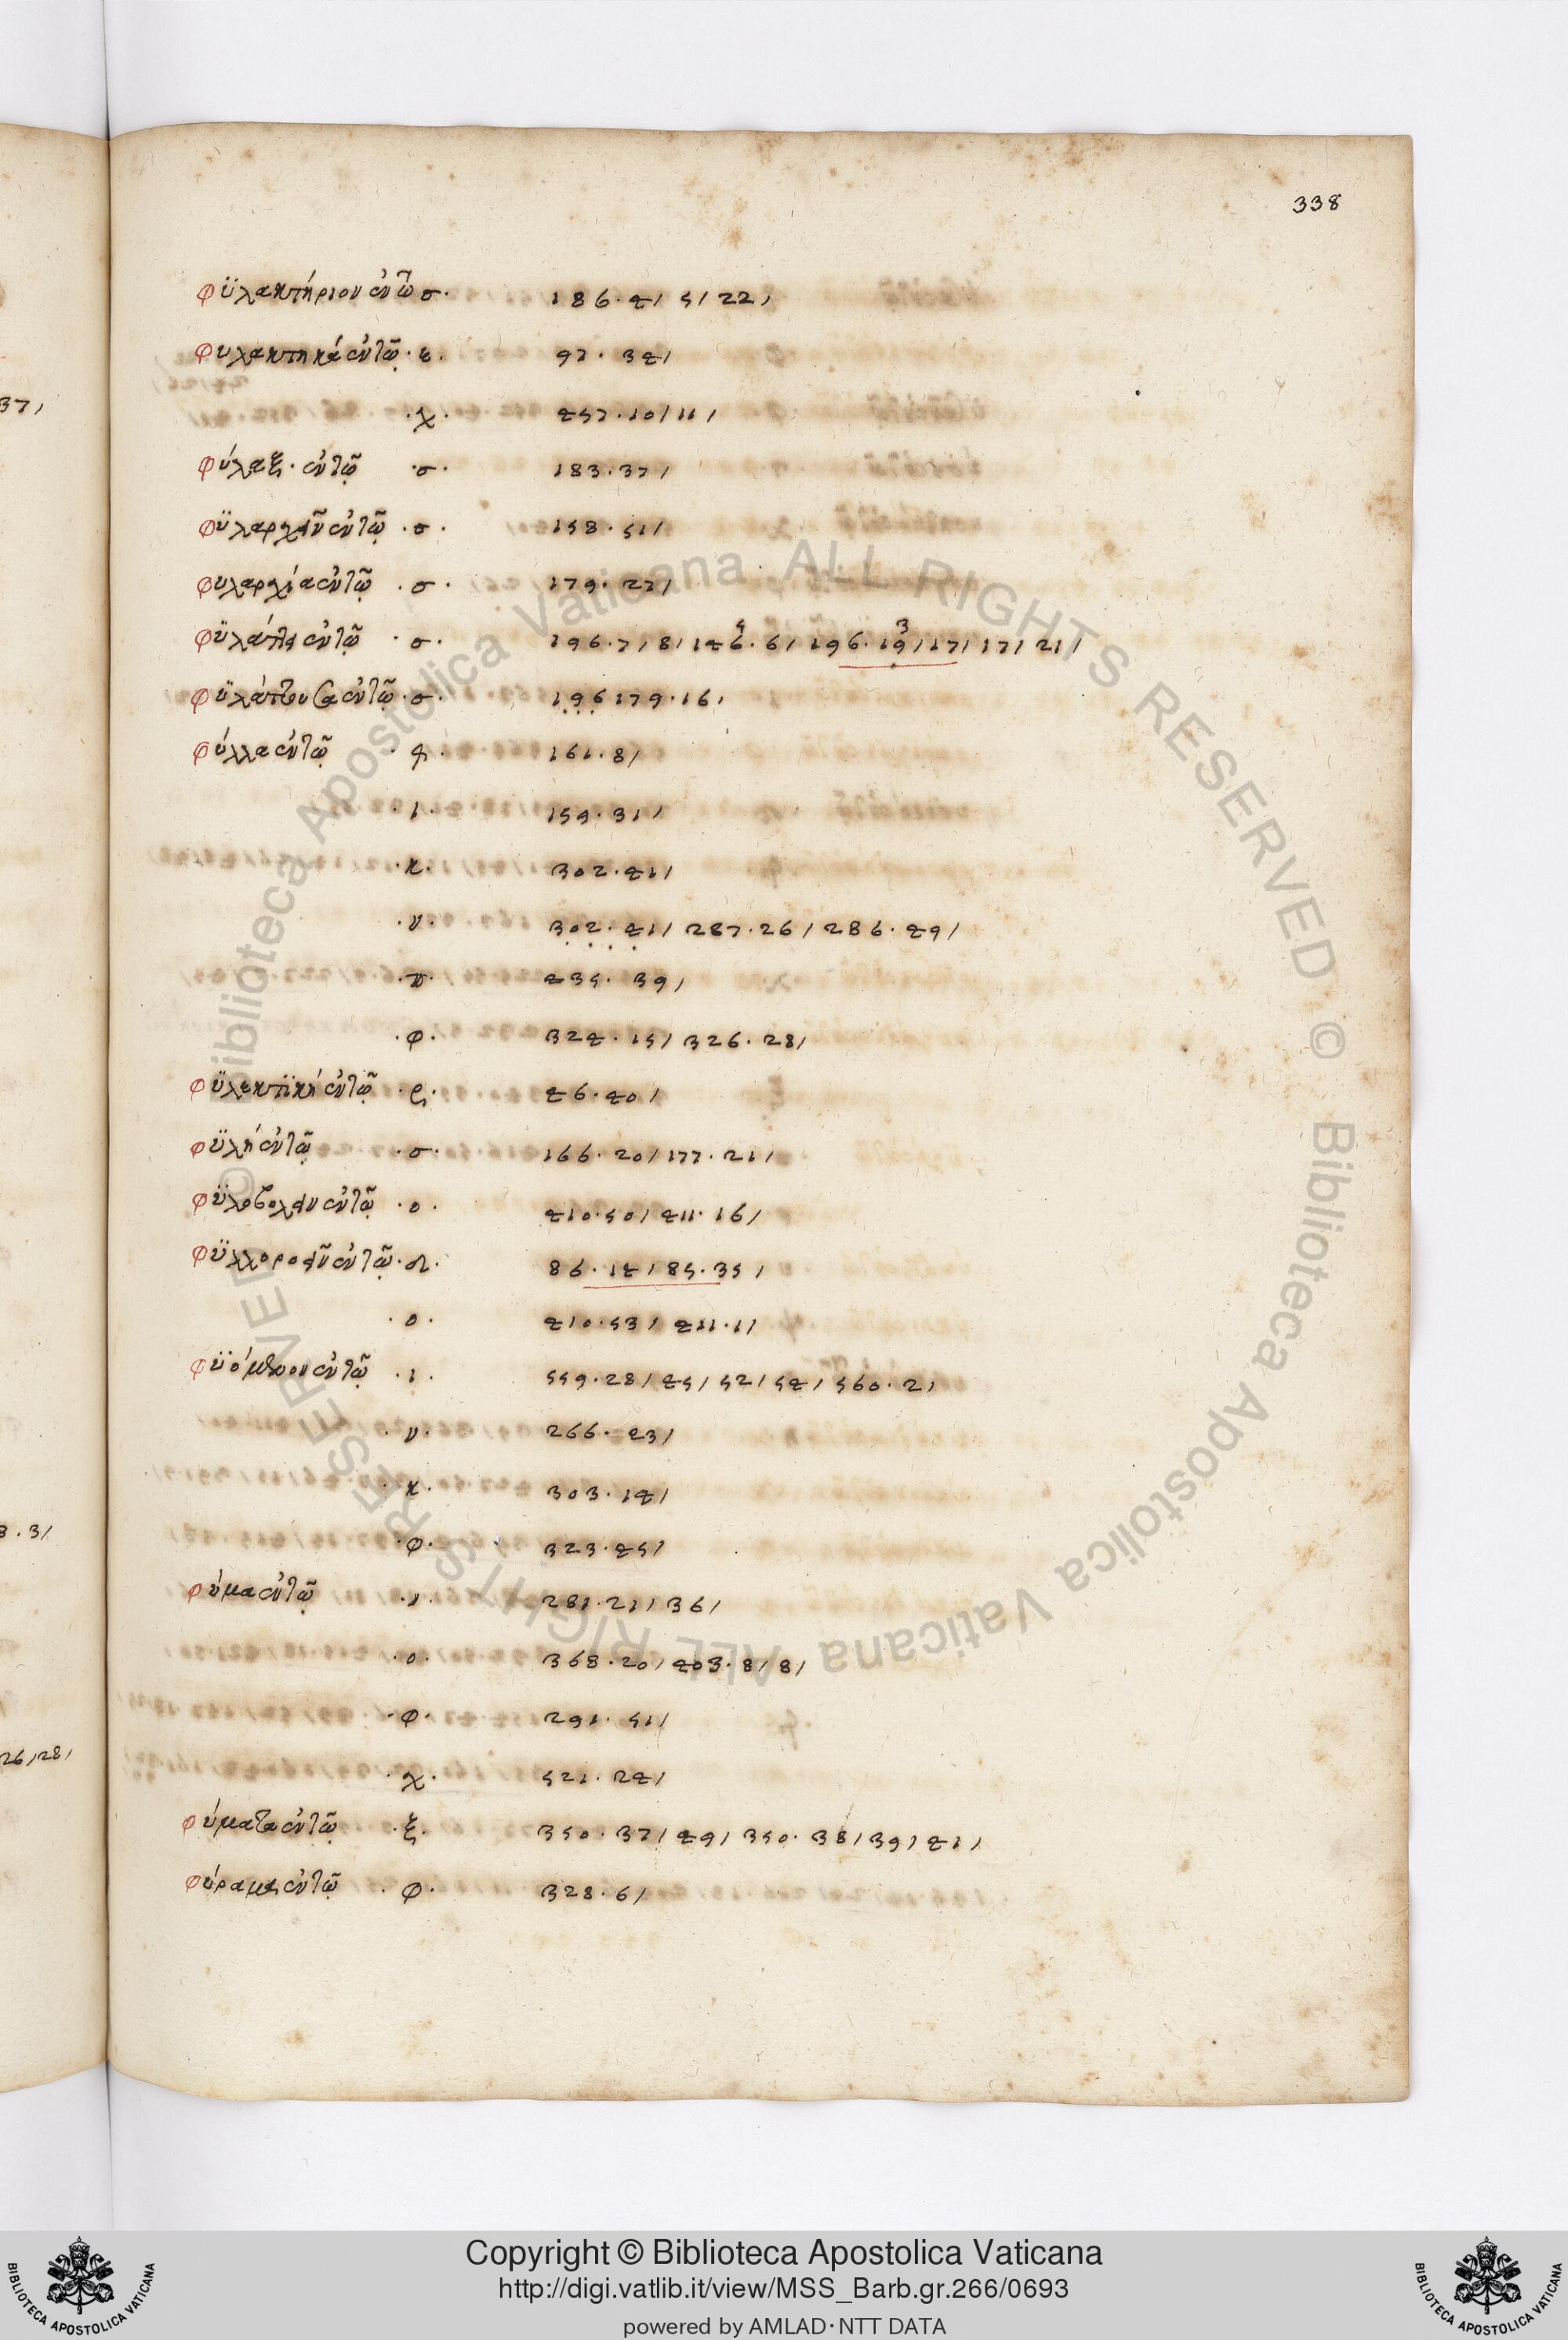 338
φϋλακτήριον ἐν τῶ σ· 186·4/ 5/ 22/
φυλακτηκά ἐν τῷ· ε· 97· 34/
·χ· 457·10/11/
φύλαξ· ἐν τῷ ·σ· 183·37/
φϋλαρχεῖν ἐν τῷ ·σ· 158·51/
φυλαρχία ἐν τῷ ·σ· 179·27/
φϋλάττει ἐν τῷ ·σ· 196·7/8/146·6/ 196·19/17/17/21/
φϋλάττουσα ἐν τῷ·σ· 196179·16/
φύλλα ἐν τῷ 161·8/
·ι· 159·31/
·κ· 302·41/
·ν· 302·41/ 287·26/ 286·49/
·π· 435· 39/
·φ· 324·15/ 326·28/
φϋλακτϊκή ἐν τῷ ·ρ· 46·40/
φϋλή ἐν τῷ ·σ· 166·20/177·21/
φϋλοβολεῖν ἐν τῷ ·ο· 410·50/ 411·16/
φϋλλοροεῖν ἐν τῷ· 86·14/85·35/
·ο· 410·53/ 411·1/
φϋόμενον ἐν τῷ ·ι· 559·28/45/52/54/560·2/
·ν· 266·23/
·κ· 303·14/
·φ· 323·45/
φύμα ἐν τῷ ·ν· 281·21/36/
·ο· 368·20/403·8/8/
·φ· 291·51/
·χ· 521·24/
φύματα ἐν τῷ ·ξ· 350·37/49/350·38/39/41/
φύραμα ἐν τῷ ·φ· 328·6/
37/
8·3/
26/28/
© Biblioteca Apostolica Vaticana ALL RIGHTS RESERVED © Biblioteca Apostolica Vaticana ALL RIGHTS RESERVED
BIBLIOTECA APOSTOLICA VATICANA
Copyright © Biblioteca Apostolica Vaticana
http://digi.vatlib.it/view/MSS_Barb.gr.266/0693
powered by AMLAD·NTT DATA
BIBLIOTECA APOSTOLICA VATICANA